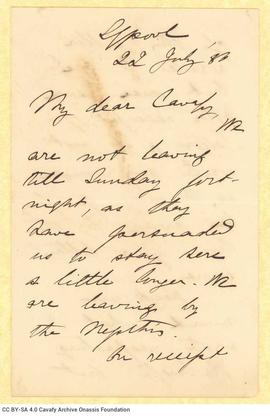 L'pool
22 July '82
My dear Cavafy,
We
are not leaving
till Sunday fort
night, as they
have persuaded
us to stay here
a little longer. We
are leaving by
the Nepthis.
On receipt
CC BY-SA 4.0 Cavafy Archive Onassis Foundation